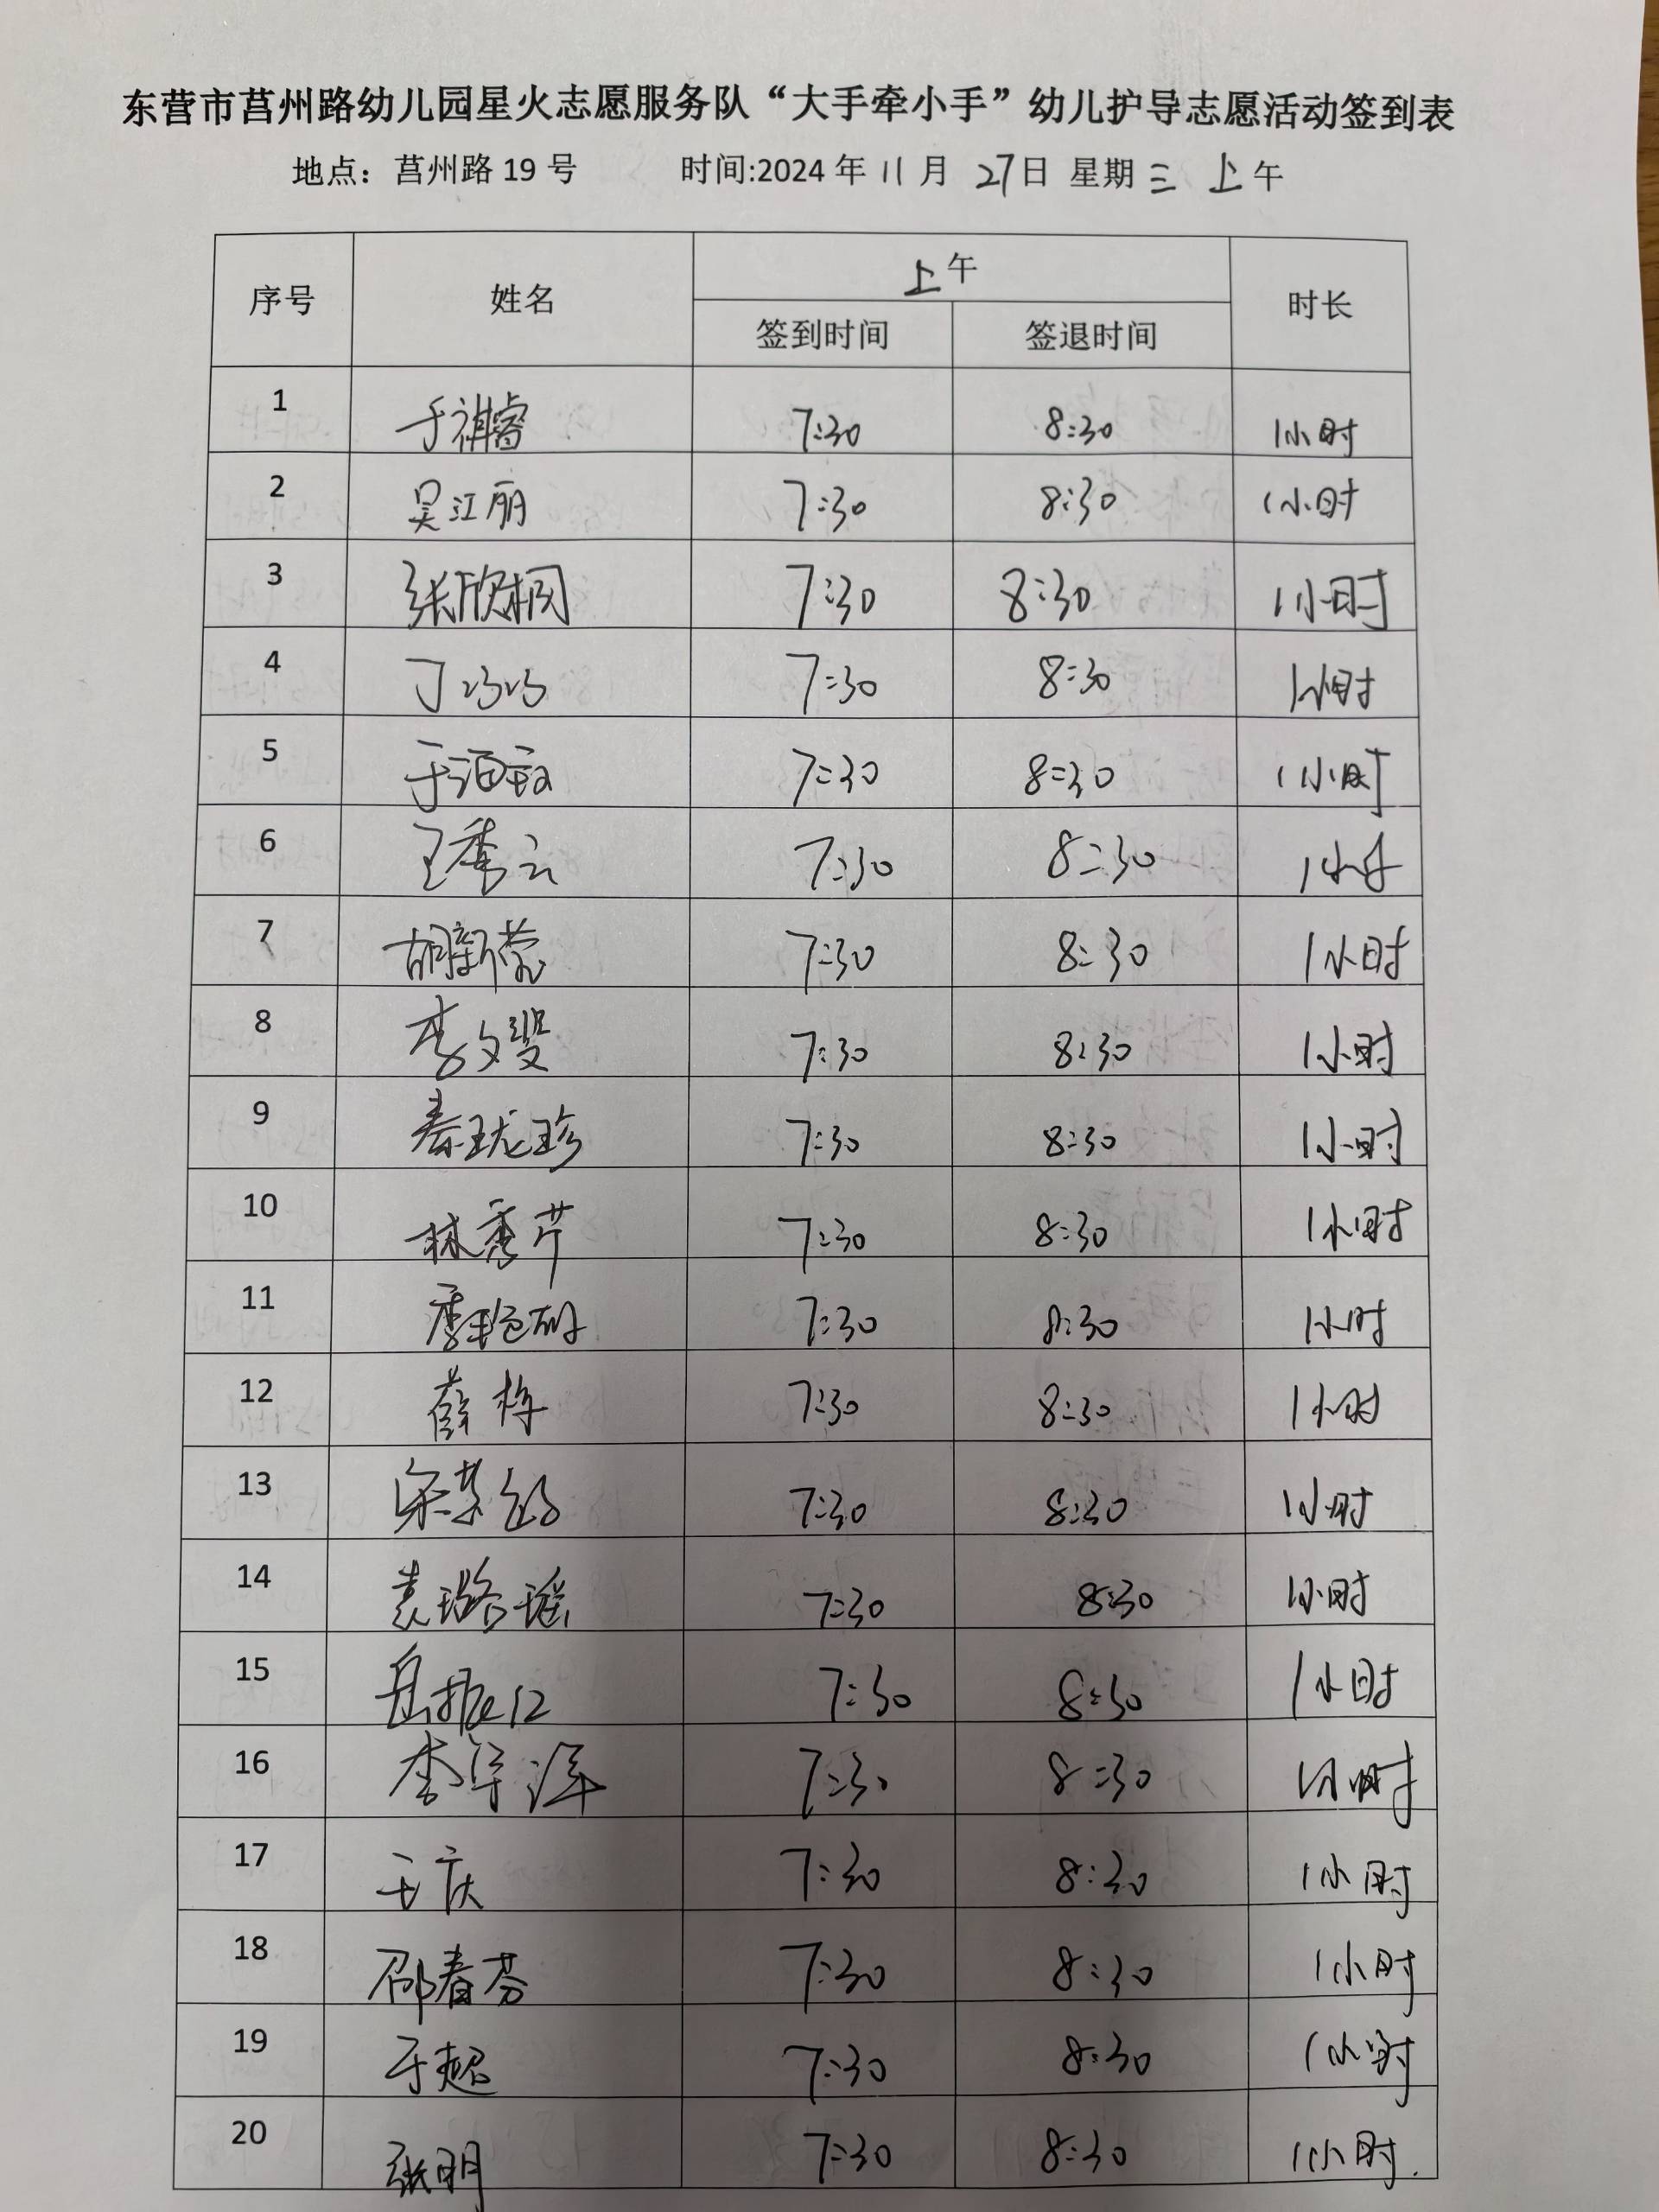 东营市莒州路幼儿园星火志愿服务队“大手牵小手”幼儿护导志愿活动签到表
地点：莒州路 19 号 时间:2024 年 11 月 27日 星期三 上午
序号 姓名 上午 时长
签到时间 签退时间
1 于祺睿 7:30 8:30 1小时
2 吴江丽 7:30 8:30 1小时
3 张欣桐 7:30 8:30 1小时
4 丁 7:30 8:30 1小时
5 于 7:30 8:30 1小时
6 王秀云 7:30 8:30 1小时
7 胡新蕊 7:30 8:30 1小时
8 李文斐 7:30 8:30 1小时
9 秦珑珍 7:30 8:30 1小时
10 林秀芹 7:30 8:30 1小时
11 季艳丽 7:30 8:30 1小时
12 薛梅 7:30 8:30 1小时
13 宋 7:30 8:30 1小时
14 袁璐瑶 7:30 8:30 1小时
15 岳振江 7:30 8:30 1小时
16 李军 7:30 8:30 1小时
17 王庆 7:30 8:30 1小时
18 邵春芬 7:30 8:30 1小时
19 于超 7:30 8:30 1小时
20 张明 7:30 8:30 1小时.